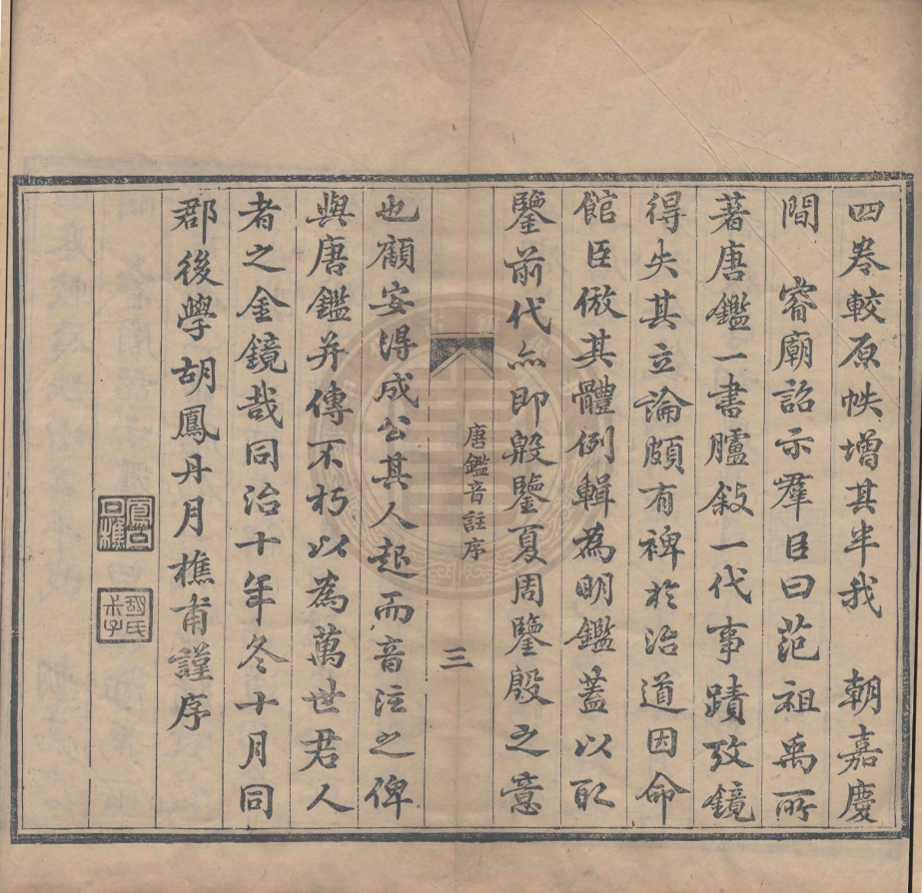 四卷較原帙增其半我　朝嘉慶
間　睿廟詔示羣臣曰范祖禹所
著唐鑑一書臚敘一代事蹟攷鏡
得失其立論頗有裨於治道因命
館臣倣其體例輯為明鑑蓋以取
鑒前代亦即殷鑒夏周鑒殷之意
唐鑑音註序
三
也顧安得成公其人起而音注之俾
與唐鑑并傳不朽以為萬世君人
者之金鏡哉同治十年冬十月同
郡後學胡鳳丹月樵甫謹序